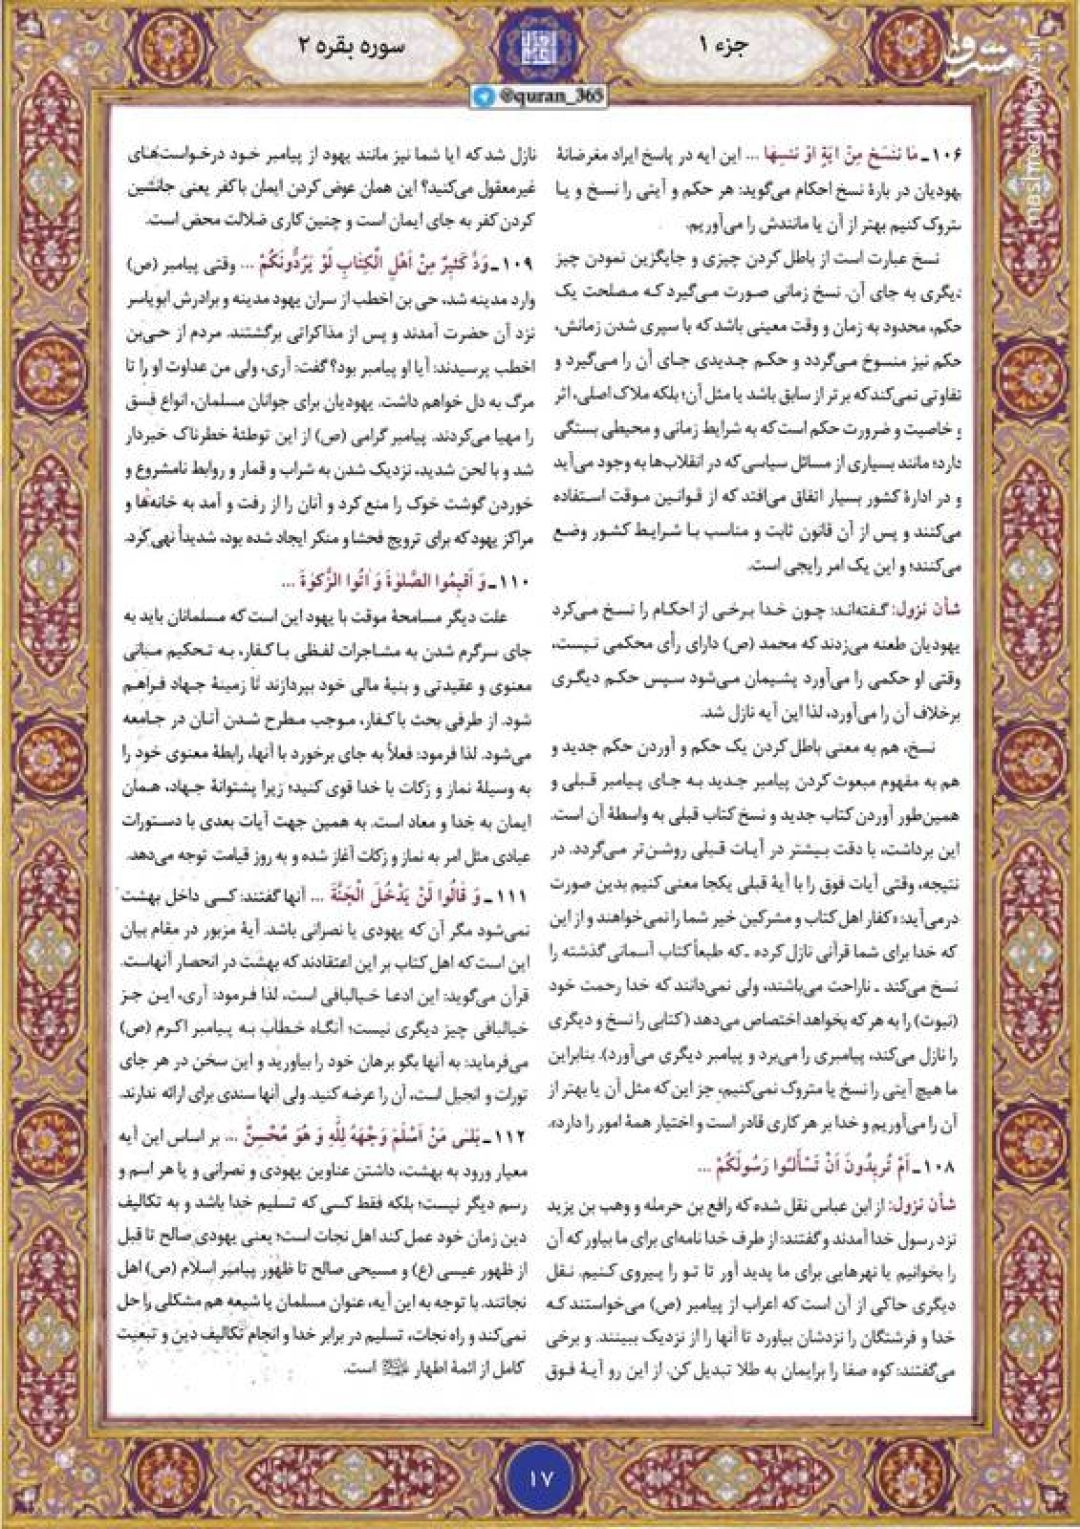 جزء ۱
سوره بقره ۲
@quran_365
مشرق
mashreghnews.ir
۱۰۶ـ مَا نَنْسَخْ مِنْ آيَةٍ اَوْ نُنْسِهَا ... این آیه در پاسخ ایراد مغرضانهٔ
یهودیان در بارهٔ نسخ احکام می‌گوید: هر حکم و آیتی را نسخ و یا
متروک کنیم بهتر از آن یا مانندش را می‌آوریم.
نسخ عبارت است از باطل کردن چیزی و جایگزین نمودن چیز
دیگری به جای آن. نسخ زمانی صورت می‌گیرد که مصلحت یک
حکم، محدود به زمان و وقت معینی باشد که با سپری شدن زمانش،
حکم نیز منسوخ می‌گردد و حکم جدیدی جای آن را می‌گیرد و
تفاوتی نمی‌کند که برتر از سابق باشد یا مثل آن؛ بلکه ملاک اصلی، اثر
و خاصیت و ضرورت حکم است که به شرایط زمانی و محیطی بستگی
دارد؛ مانند بسیاری از مسائل سیاسی که در انقلاب‌ها به وجود می‌آید
و در ادارهٔ کشور بسیار اتفاق می‌افتد که از قوانین موقت استفاده
می‌کنند و پس از آن قانون ثابت و مناسب با شرایط کشور وضع
می‌کنند؛ و این یک امر رایجی است.
شأن نزول: گفته‌اند: چون خدا برخی از احکام را نسخ می‌کرد
یهودیان طعنه می‌زدند که محمد (ص) دارای رأی محکمی نیست،
وقتی او حکمی را می‌آورد پشیمان می‌شود سپس حکم دیگری
برخلاف آن را می‌آورد، لذا این آیه نازل شد.
نسخ، هم به معنی باطل کردن یک حکم و آوردن حکم جدید و
هم به مفهوم مبعوث کردن پیامبر جدید به جای پیامبر قبلی و
همین‌طور آوردن کتاب جدید و نسخ کتاب قبلی به واسطهٔ آن است.
این برداشت، با دقت بیشتر در آیات قبلی روشن‌تر می‌گردد. در
نتیجه، وقتی آیات فوق را با آیهٔ قبلی یکجا معنی کنیم بدین صورت
درمی‌آید: «کفار اهل کتاب و مشرکین خیر شما را نمی‌خواهند و از این
که خدا برای شما قرآنی نازل کرده ـ که طبعاً کتاب آسمانی گذشته را
نسخ می‌کند ـ ناراحت می‌باشند، ولی نمی‌دانند که خدا رحمت خود
(نبوت) را به هر که بخواهد اختصاص می‌دهد (کتابی را نسخ و دیگری
را نازل می‌کند، پیامبری را می‌برد و پیامبر دیگری می‌آورد). بنابراین
ما هیچ آیتی را نسخ یا متروک نمی‌کنیم، جز این که مثل آن یا بهتر از
آن را می‌آوریم و خدا بر هر کاری قادر است و اختیار همهٔ امور را دارد».
۱۰۸ـ اَمْ تُرِيدُونَ اَنْ تَسْأَلُوا رَسُولَكُمْ ...
شأن نزول: از ابن عباس نقل شده که رافع بن حرمله و وهب بن یزید
نزد رسول خدا آمدند و گفتند: از طرف خدا نامه‌ای برای ما بیاور که آن
را بخوانیم یا نهرهایی برای ما پدید آور تا تو را پیروی کنیم. نقل
دیگری حاکی از آن است که اعراب از پیامبر (ص) می‌خواستند که
خدا و فرشتگان را نزدشان بیاورد تا آنها را از نزدیک ببینند. و برخی
می‌گفتند: کوه صفا را برایمان به طلا تبدیل کن. از این رو آیهٔ فوق
نازل شد که آیا شما نیز مانند یهود از پیامبر خود درخواست‌های
غیرمعقول می‌کنید؟ این همان عوض کردن ایمان با کفر یعنی جانشین
کردن کفر به جای ایمان است و چنین کاری ضلالت محض است.
۱۰۹ـ وَدَّ كَثِيرٌ مِنْ اَهْلِ الْكِتَابِ لَوْ يَرُدُّونَكُمْ ... وقتی پیامبر (ص)
وارد مدینه شد، حی بن اخطب از سران یهود مدینه و برادرش ابویاسر
نزد آن حضرت آمدند و پس از مذاکراتی برگشتند. مردم از حی‌بن
اخطب پرسیدند: آیا او پیامبر بود؟ گفت: آری، ولی من عداوت او را تا
مرگ به دل خواهم داشت. یهودیان برای جوانان مسلمان، انواع فسق
را مهیا می‌کردند. پیامبر گرامی (ص) از این توطئهٔ خطرناک خبردار
شد و با لحن شدید، نزدیک شدن به شراب و قمار و روابط نامشروع و
خوردن گوشت خوک را منع کرد و آنان را از رفت و آمد به خانه‌ها و
مراکز یهود که برای ترویج فحشا و منکر ایجاد شده بود، شدیداً نهی کرد.
۱۱۰ـ وَ اَقِيمُوا الصَّلوٰةَ وَ اٰتُوا الزَّكوٰةَ ...
علت دیگر مسامحهٔ موقت با یهود این است که مسلمانان باید به
جای سرگرم شدن به مشاجرات لفظی با کفار، به تحکیم مبانی
معنوی و عقیدتی و بنیهٔ مالی خود بپردازند تا زمینهٔ جهاد فراهم
شود. از طرفی بحث با کفار، موجب مطرح شدن آنان در جامعه
می‌شود. لذا فرمود: فعلاً به جای برخورد با آنها، رابطهٔ معنوی خود را
به وسیلهٔ نماز و زکات با خدا قوی کنید؛ زیرا پشتوانهٔ جهاد، همان
ایمان به خدا و معاد است. به همین جهت آیات بعدی با دستورات
عبادی مثل امر به نماز و زکات آغاز شده و به روز قیامت توجه می‌دهد.
۱۱۱ـ وَ قَالُوا لَنْ يَدْخُلَ الْجَنَّةَ ... آنها گفتند: کسی داخل بهشت
نمی‌شود مگر آن که یهودی یا نصرانی باشد. آیهٔ مزبور در مقام بیان
این است که اهل کتاب بر این اعتقادند که بهشت در انحصار آنهاست.
قرآن می‌گوید: این ادعا خیالبافی است، لذا فرمود: آری، این جز
خیالبافی چیز دیگری نیست؛ آنگاه خطاب به پیامبر اکرم (ص)
می‌فرماید: به آنها بگو برهان خود را بیاورید و این سخن در هر جای
تورات و انجیل است، آن را عرضه کنید. ولی آنها سندی برای ارائه ندارند.
۱۱۲ـ بَلٰى مَنْ اَسْلَمَ وَجْهَهُ لِلّٰهِ وَ هُوَ مُحْسِنٌ ... بر اساس این آیه
معیار ورود به بهشت، داشتن عناوین یهودی و نصرانی و یا هر اسم و
رسم دیگر نیست؛ بلکه فقط کسی که تسلیم خدا باشد و به تکالیف
دین زمان خود عمل کند اهل نجات است؛ یعنی یهودی صالح تا قبل
از ظهور عیسی (ع) و مسیحی صالح تا ظهور پیامبر اسلام (ص) اهل
نجاتند. با توجه به این آیه، عنوان مسلمان یا شیعه هم مشکلی را حل
نمی‌کند و راه نجات، تسلیم در برابر خدا و انجام تکالیف دین و تبعیت
کامل از ائمهٔ اطهار است.
۱۷